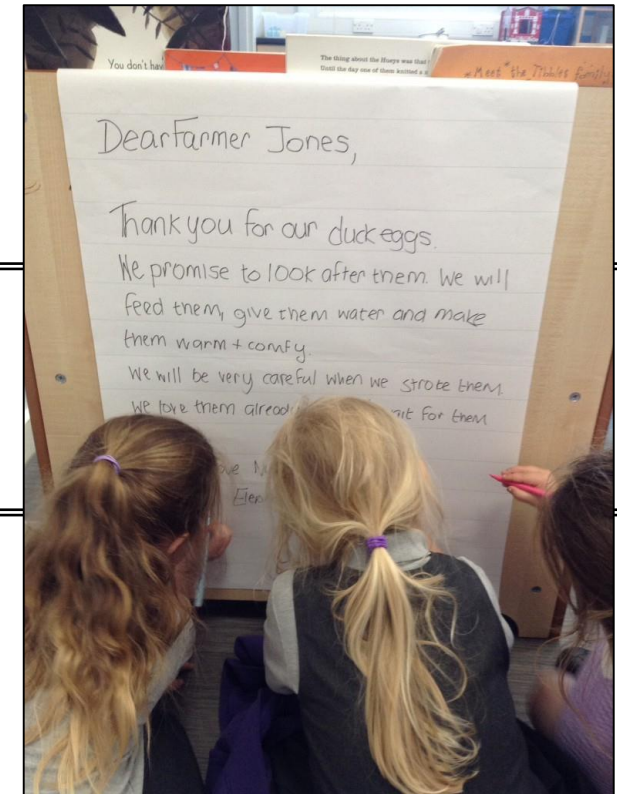 You don't hav
The thing about the Hueys was that
Until the day one of them knitted a
Meet the Tribbles family
Dear Farmer Jones,
Thank you for our duck eggs.
We promise to look after them. We will
feed them, give them water and make
them warm + comfy.
We will be very careful when we stroke them.
We love them already for them